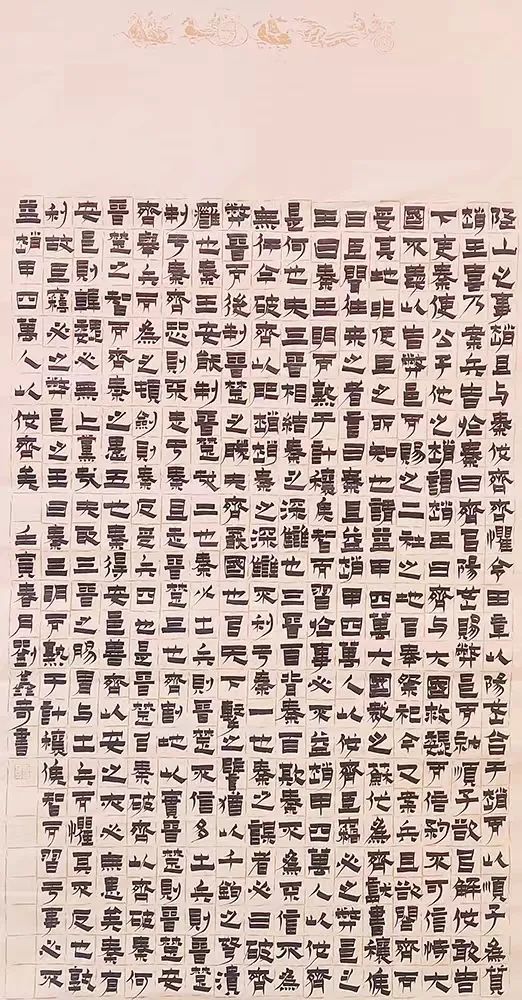 陘山之事趙且与秦伐齊齊懼令田章以陽武合于趙而以順子為質
趙王喜乃案兵告於秦曰齊以陽武賜弊邑而納順子欲以解伐敢告
下吏秦使公子他之趙謂趙王曰齊与大國救魏而倍約不可信恃大
國不義以告弊邑而賜之二社之地以奉祭祀今又案兵且欲合齊而
受其地非使臣之所知也請益甲四萬大國裁之蘇代為齊獻書穰侯
曰臣聞往來之者言曰秦且益趙甲四萬人以伐齊臣竊必之弊邑之
王曰秦王明而熟于計穰侯智而習於事必不益趙甲四萬人以伐齊
是何也夫三晉相結秦之深讎也三晉百背秦百欺秦不為不信不為
無行今破齊以肥趙趙秦之深讎不利于秦一也秦之謀者必曰破齊
弊晉而後制晉楚之勝夫齊罷國也以天下擊之譬猶以千鈞之弩潰
癰也秦王安能制晉楚哉二也秦少出兵則晉楚不信多出兵則晉楚
制于秦齊恐則不走于秦且走晉楚三也齊割地以實晉楚則晉楚安
齊舉兵而為之頓劍則秦反受兵四也是晉楚以秦破齊以齊破秦何
晉楚之智而齊秦之愚五也秦得安邑善齊以安之亦必無患矣秦有
安邑則韓魏必無上黨哉夫取三晉之腸胃与出兵而懼其不反也孰
利故臣竊必之弊邑之王曰秦王明而熟于計穰侯智而習于事必不
益趙甲四萬人以伐齊矣 壬寅春月劉鑫奇書